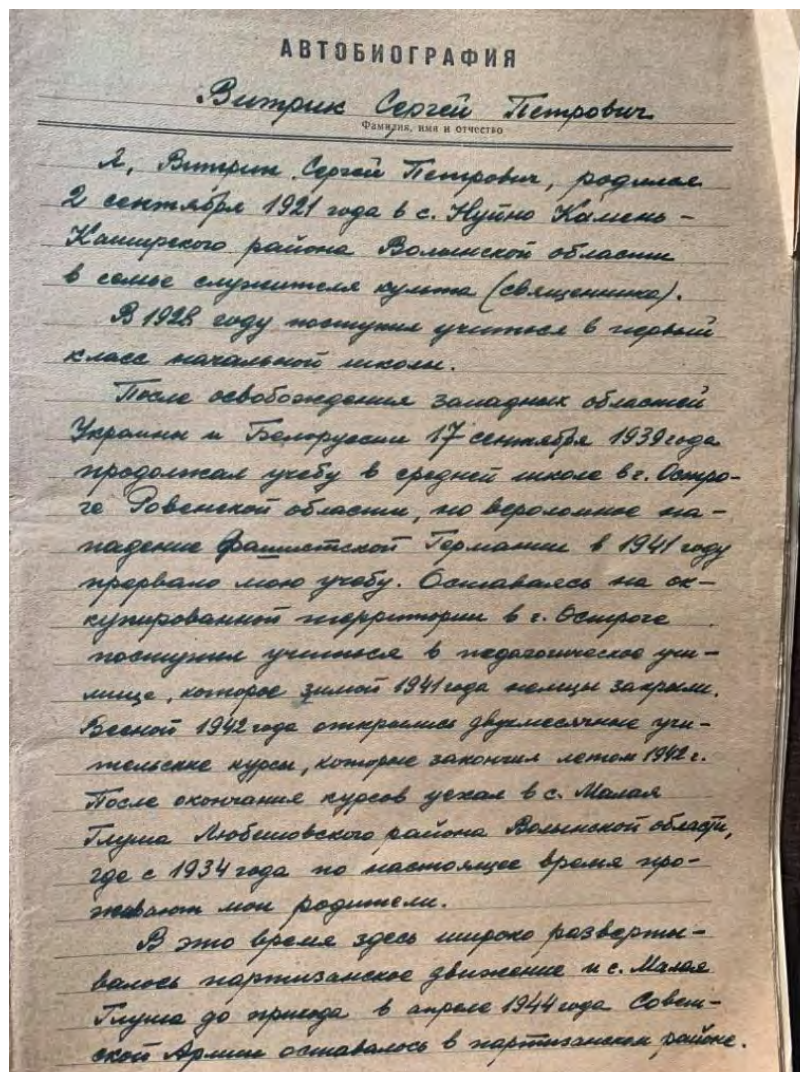 АВТОБИОГРАФИЯ
Витрик Сергей Петрович
Фамилия, имя и отчество
Я, Витрик Сергей Петрович, родился
2 сентября 1921 года в с. Нуйно Камень-
Каширского района Волынской области
в семье служителя культа (священника).
В 1928 году поступил учиться в первый
класс начальной школы.
После освобождения западных областей
Украины и Белоруссии 17 сентября 1939 года
продолжал учебу в средней школе в г. Остро-
ге Ровенской области, но вероломное на-
падение фашистской Германии в 1941 году
прервало мою учебу. Оставаясь на ок-
купированной территории в г. Остроге
поступил учиться в педагогическое учи-
лище, которое зимой 1941 года немцы закрыли.
Весной 1942 года открылись двухмесячные учи-
тельские курсы, которые закончил летом 1942 г.
После окончания курсов уехал в с. Малая
Глуша Любешовского района Волынской области,
где с 1934 года по настоящее время про-
живают мои родители.
В это время здесь широко разверты-
валось партизанское движение и с. Малая
Глуша до прихода в апреле 1944 года Совет-
ской Армии оставалось в партизанском районе.